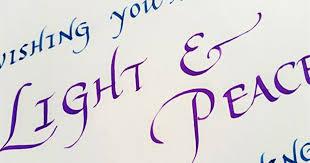 WISHING YOU
LIGHT &
PEACE